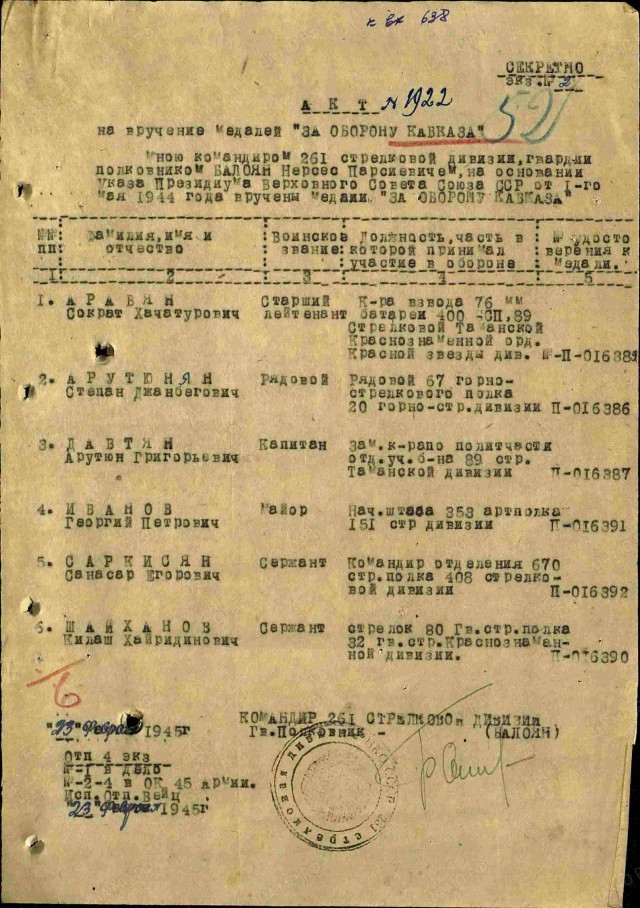 к вх 638
СЕКРЕТНО
экз.№ 2
А К Т № 1922
52
на вручение медалей "ЗА ОБОРОНУ КАВКАЗА"
Мною командиром 261 стрелковой дивизии, гвардии
полковником БАЛОЯН Нерсес Парсиевичем, на основании
Указа Президиума Верховного Совета Союза ССР от 1-го
мая 1944 года вручены медали "ЗА ОБОРОНУ КАВКАЗА"
№№ пп: Фамилия, имя и отчество : Воинское звание: Должность, часть в которой принимал участие в обороне : № удосто верения к медали.
1 2 3 4 5
1. А Р А Б Я Н Старший К-ра взвода 76 мм
Сократ Хачатурович лейтенант батареи 400 -СП, 89
Стрелковой Таманской
Краснознаменной орд.
Красной звезды див. №-П-016385
2. А Р У Т Ю Н Я Н Рядовой Рядовой 67 горно-
Степан Джанбегович стрелкового полка
20 горно-стр.дивизии П-016386
3. Д А В Т Я Н Капитан Зам.к-рапо политчасти
Арутюн Григорьевич отд.уч.б-на 89 стр.
Таманской дивизии П-016387
4. И В А Н О В Майор Нач.штаба 353 артполка
Георгий Петрович 151 стр дивизии П-016391
5. С А Р К И С Я Н Сержант Командир отделения 670
Санасар Егорович стр.полка 408 стрелко-
вой дивизии П-016392
6. Ш А Й Х А Н О В Сержант стрелок 80 Гв.стр.полка
Килаш Хайридинович 32 гв.стр.Краснознаман-
ной дивизии. П-016390
6
"23" Февраля 1945г
КОМАНДИР 261 СТРЕЛКОВОЙ ДИВИЗИИ
Гв.Полковник - (БАЛОЯН)
Отп 4 экз
№-1 в дело
№-2-4 в ОК 45 армии.
Исп.Отп.Вейц
"23" Февраля 1945г
261 стрелковая дивизия